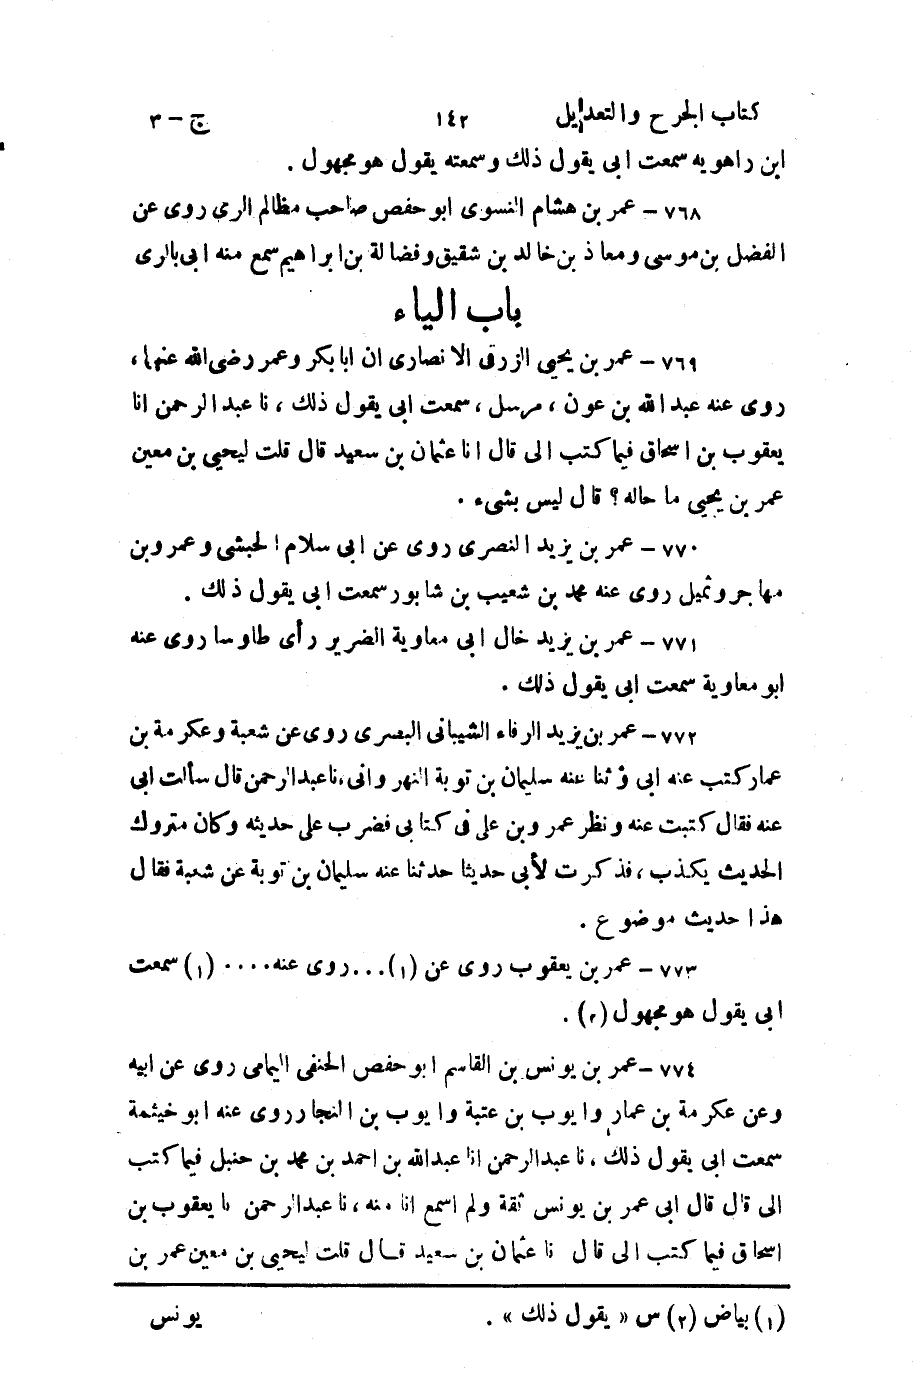 كتاب الجرح والتعديل ١٤٢ ج - ٣
ابن راهويه سمعت ابى يقول ذلك وسمعته يقول هو مجهول .
٧٦٨ - عمر بن هشام النسوى ابو حفص صاحب مظالم الرى روى عن
الفضل بن موسى ومعاذ بن خالد بن شقيق وفضالة بن ابراهيم سمع منه ابى بالرى
باب الياء
٧٦٩ - عمر بن يحيى الزرقى الانصارى ان ابا بكر وعمر رضى الله عنهما ،
روى عنه عبد الله بن عون ، مرسل ، سمعت ابى يقول ذلك ، نا عبد الرحمن انا
يعقوب بن اسحاق فيما كتب الى قال انا عثمان بن سعيد قال قلت ليحيى بن معين
عمر بن يحيى ما حاله ؟ قال ليس بشىء .
٧٧٠ - عمر بن يزيد النصرى روى عن ابى سلام الحبشى وعمرو بن
مهاجر ونميل روى عنه محمد بن شعيب بن شابور سمعت ابى يقول ذلك .
٧٧١ - عمر بن يزيد خال ابى معاوية الضرير رأى طاوسا روى عنه
ابو معاوية سمعت ابى يقول ذلك .
٧٧٢ - عمر بن يزيد الرفاء الشيبانى البصرى روى عن شعبة وعكرمة بن
عمار كتب عنه ابى وثنا عنه سليمان بن توبة النهروانى ، نا عبد الرحمن قال سألت ابى
عنه فقال كتبت عنه ونظر عمرو بن على فى كتابى فضرب على حديثه وكان متروك
الحديث يكذب ، فذكرت لأبى حديثا حدثنا عنه سليمان بن توبة عن شعبة فقال
هذا حديث موضوع .
٧٧٣ - عمر بن يعقوب روى عن (١) ... روى عنه .... (١) سمعت
ابى يقول هو مجهول (٢) .
٧٧٤ - عمر بن يونس بن القاسم ابو حفص الحنفى اليمامى روى عن ابيه
وعن عكرمة بن عمار وايوب بن عتبة وايوب بن النجار روى عنه ابو خيثمة
سمعت ابى يقول ذلك ، نا عبد الرحمن انا عبد الله بن احمد بن محمد بن حنبل فيما كتب
الى قال قال ابى عمر بن يونس ثقة ولم اسمع انا منه ، نا عبد الرحمن نا يعقوب بن
اسحاق فيما كتب الى قال نا عثمان بن سعيد قال قلت ليحيى بن معين عمر بن
(١) بياض (٢) س « يقول ذلك » . يونس